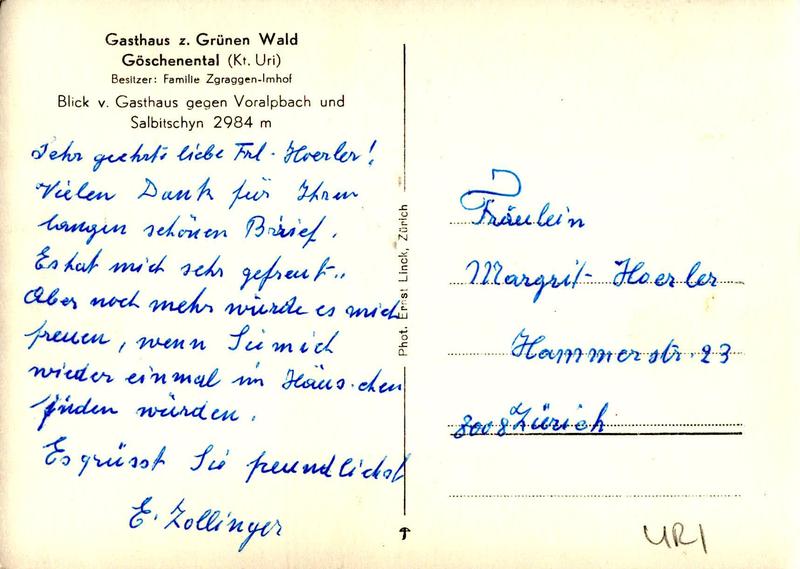 Gasthaus z. Grünen Wald
Göschenental (Kt. Uri)
Besitzer: Familie Zgraggen-Imhof
Blick v. Gasthaus gegen Voralpbach und
Salbitschyn 2984 m
Sehr geehrte liebe Frl. Hoerler!
Vielen Dank für Ihren
langen schönen Brief.
Es hat mich sehr gefreut..
Aber noch mehr würde es mich
freuen, wenn Sie mich
wieder einmal im Häuschen
finden würden.
Es grüsst Sie freundlichst
E. Zollinger
Phot. Ernst Linck, Zürich
Fräulein
Margrit Hoerler
Hammerstr. 23
8008 Zürich
URI